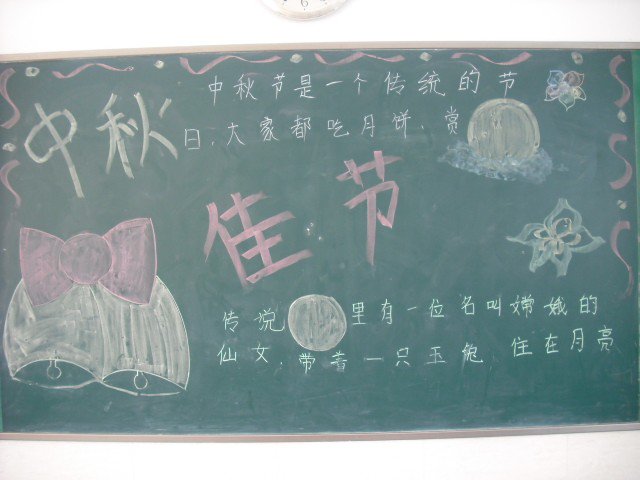 中秋节是一个传统的节
日,大家都吃月饼、赏
中秋
佳节
传说 里有一位名叫嫦娥的
仙女,带着一只玉兔,住在月亮